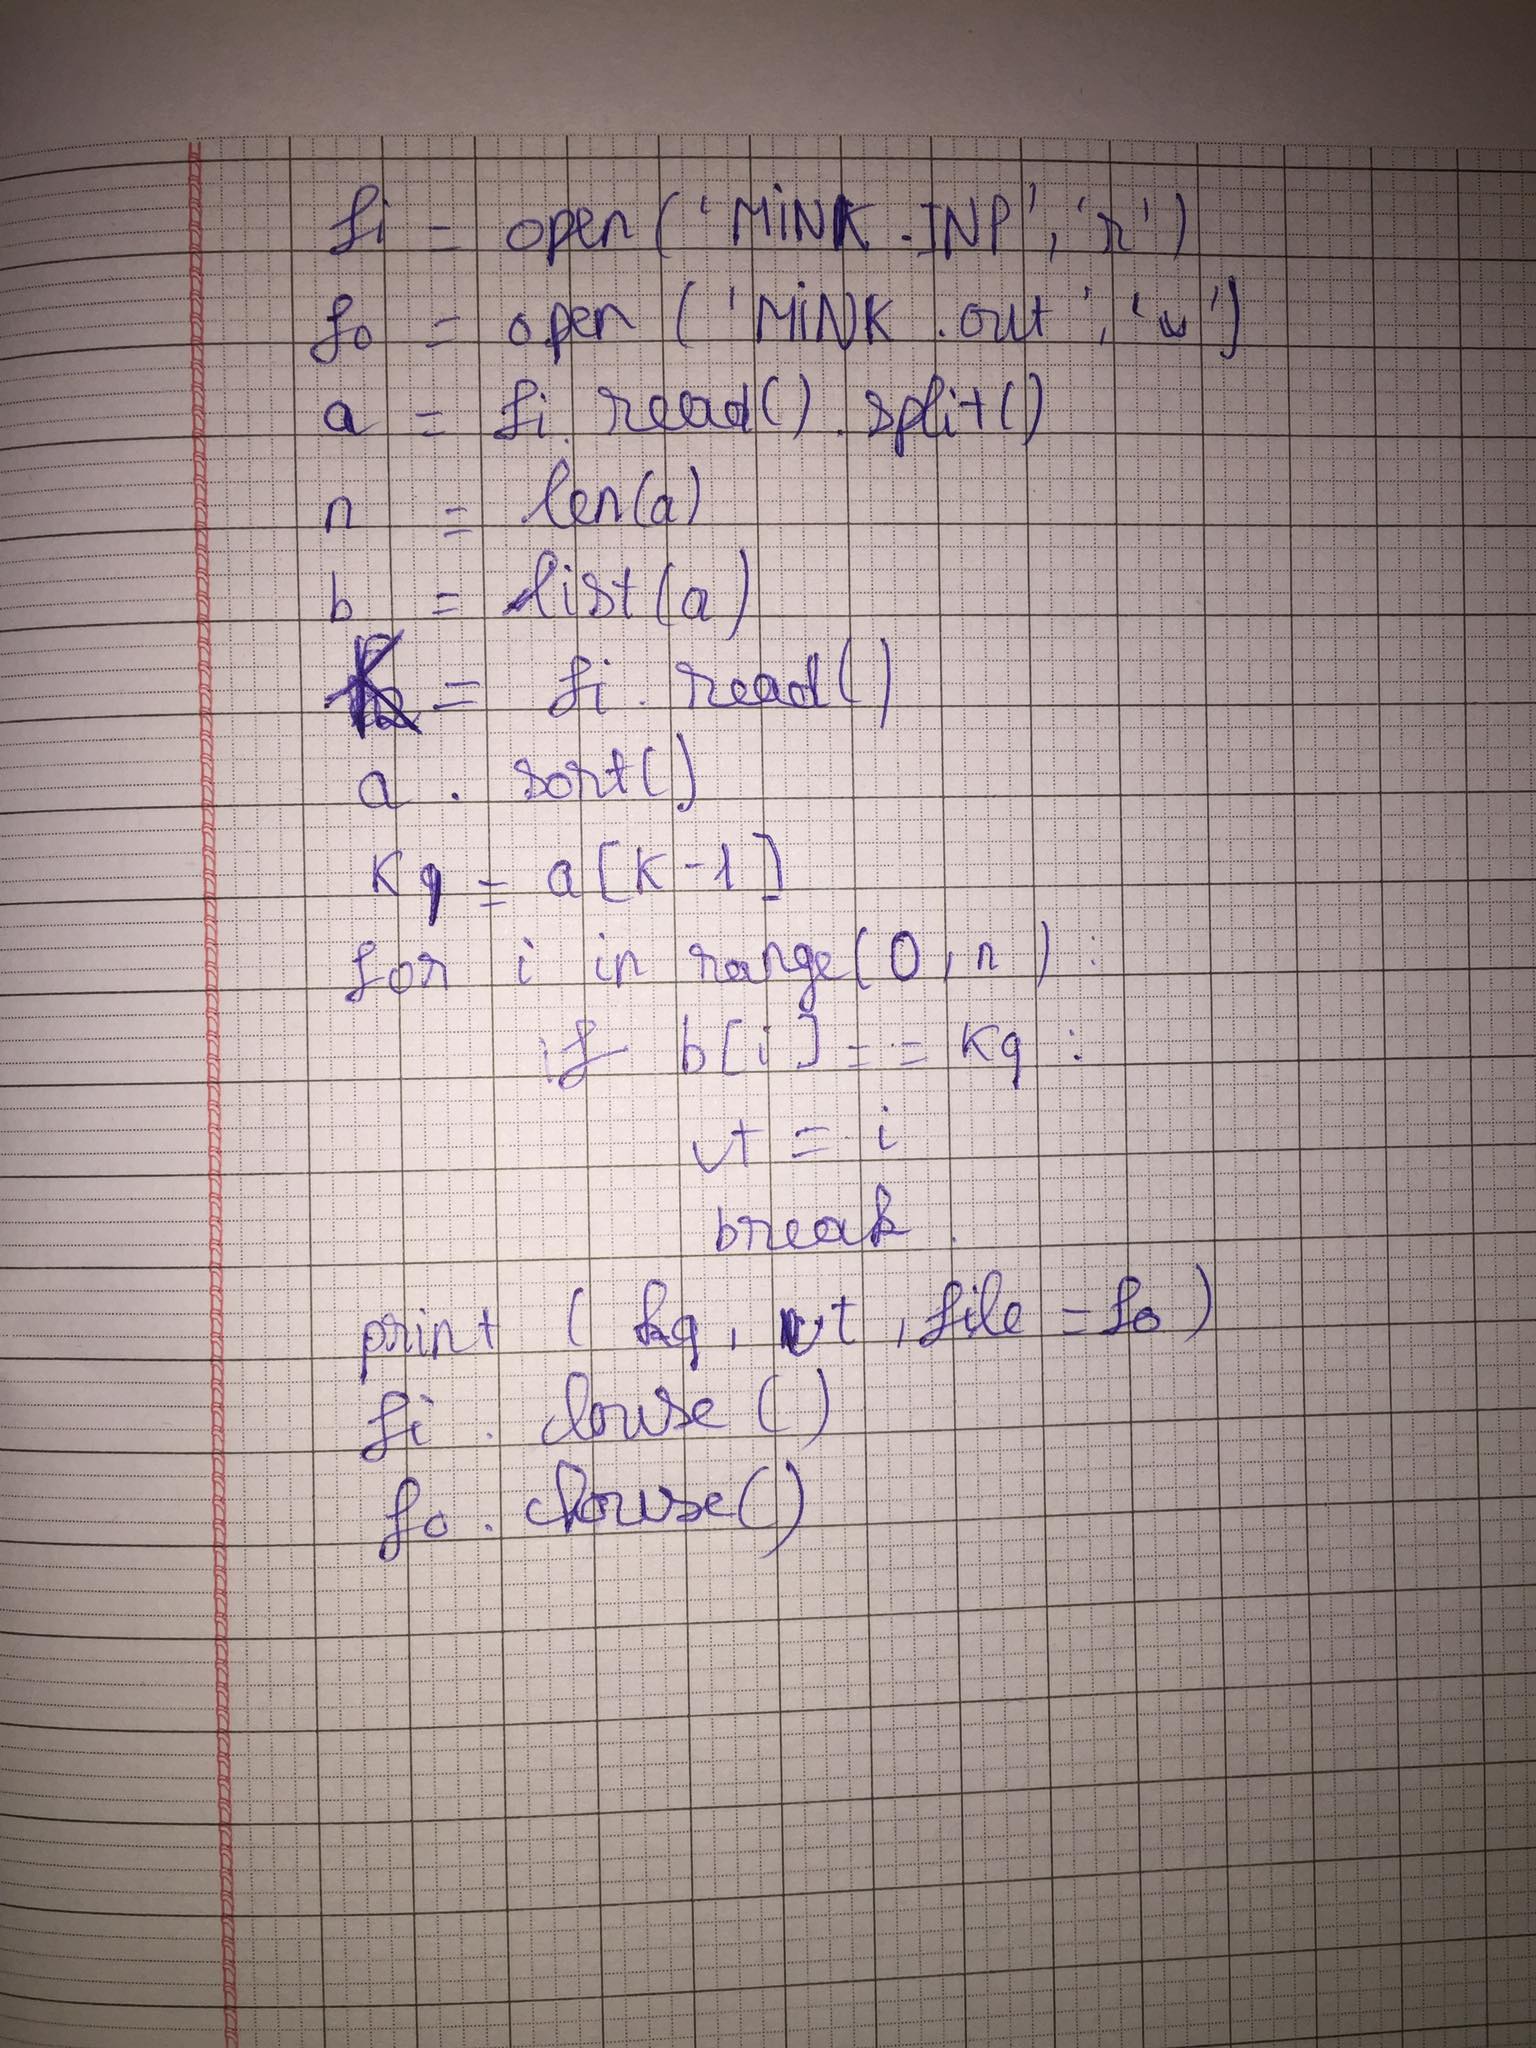 fi = open('MiNK.INP','r')
fo = open('MiNK.out','w')
a = fi.read().split()
n = len(a)
b = list(a)
K = fi.read()
a.sort()
Kq = a[K-1]
for i in range(0,n):
if b[i]==Kq:
vt = i
break.
print (kq, vt, file=fo)
fi.clouse()
fo.clouse()